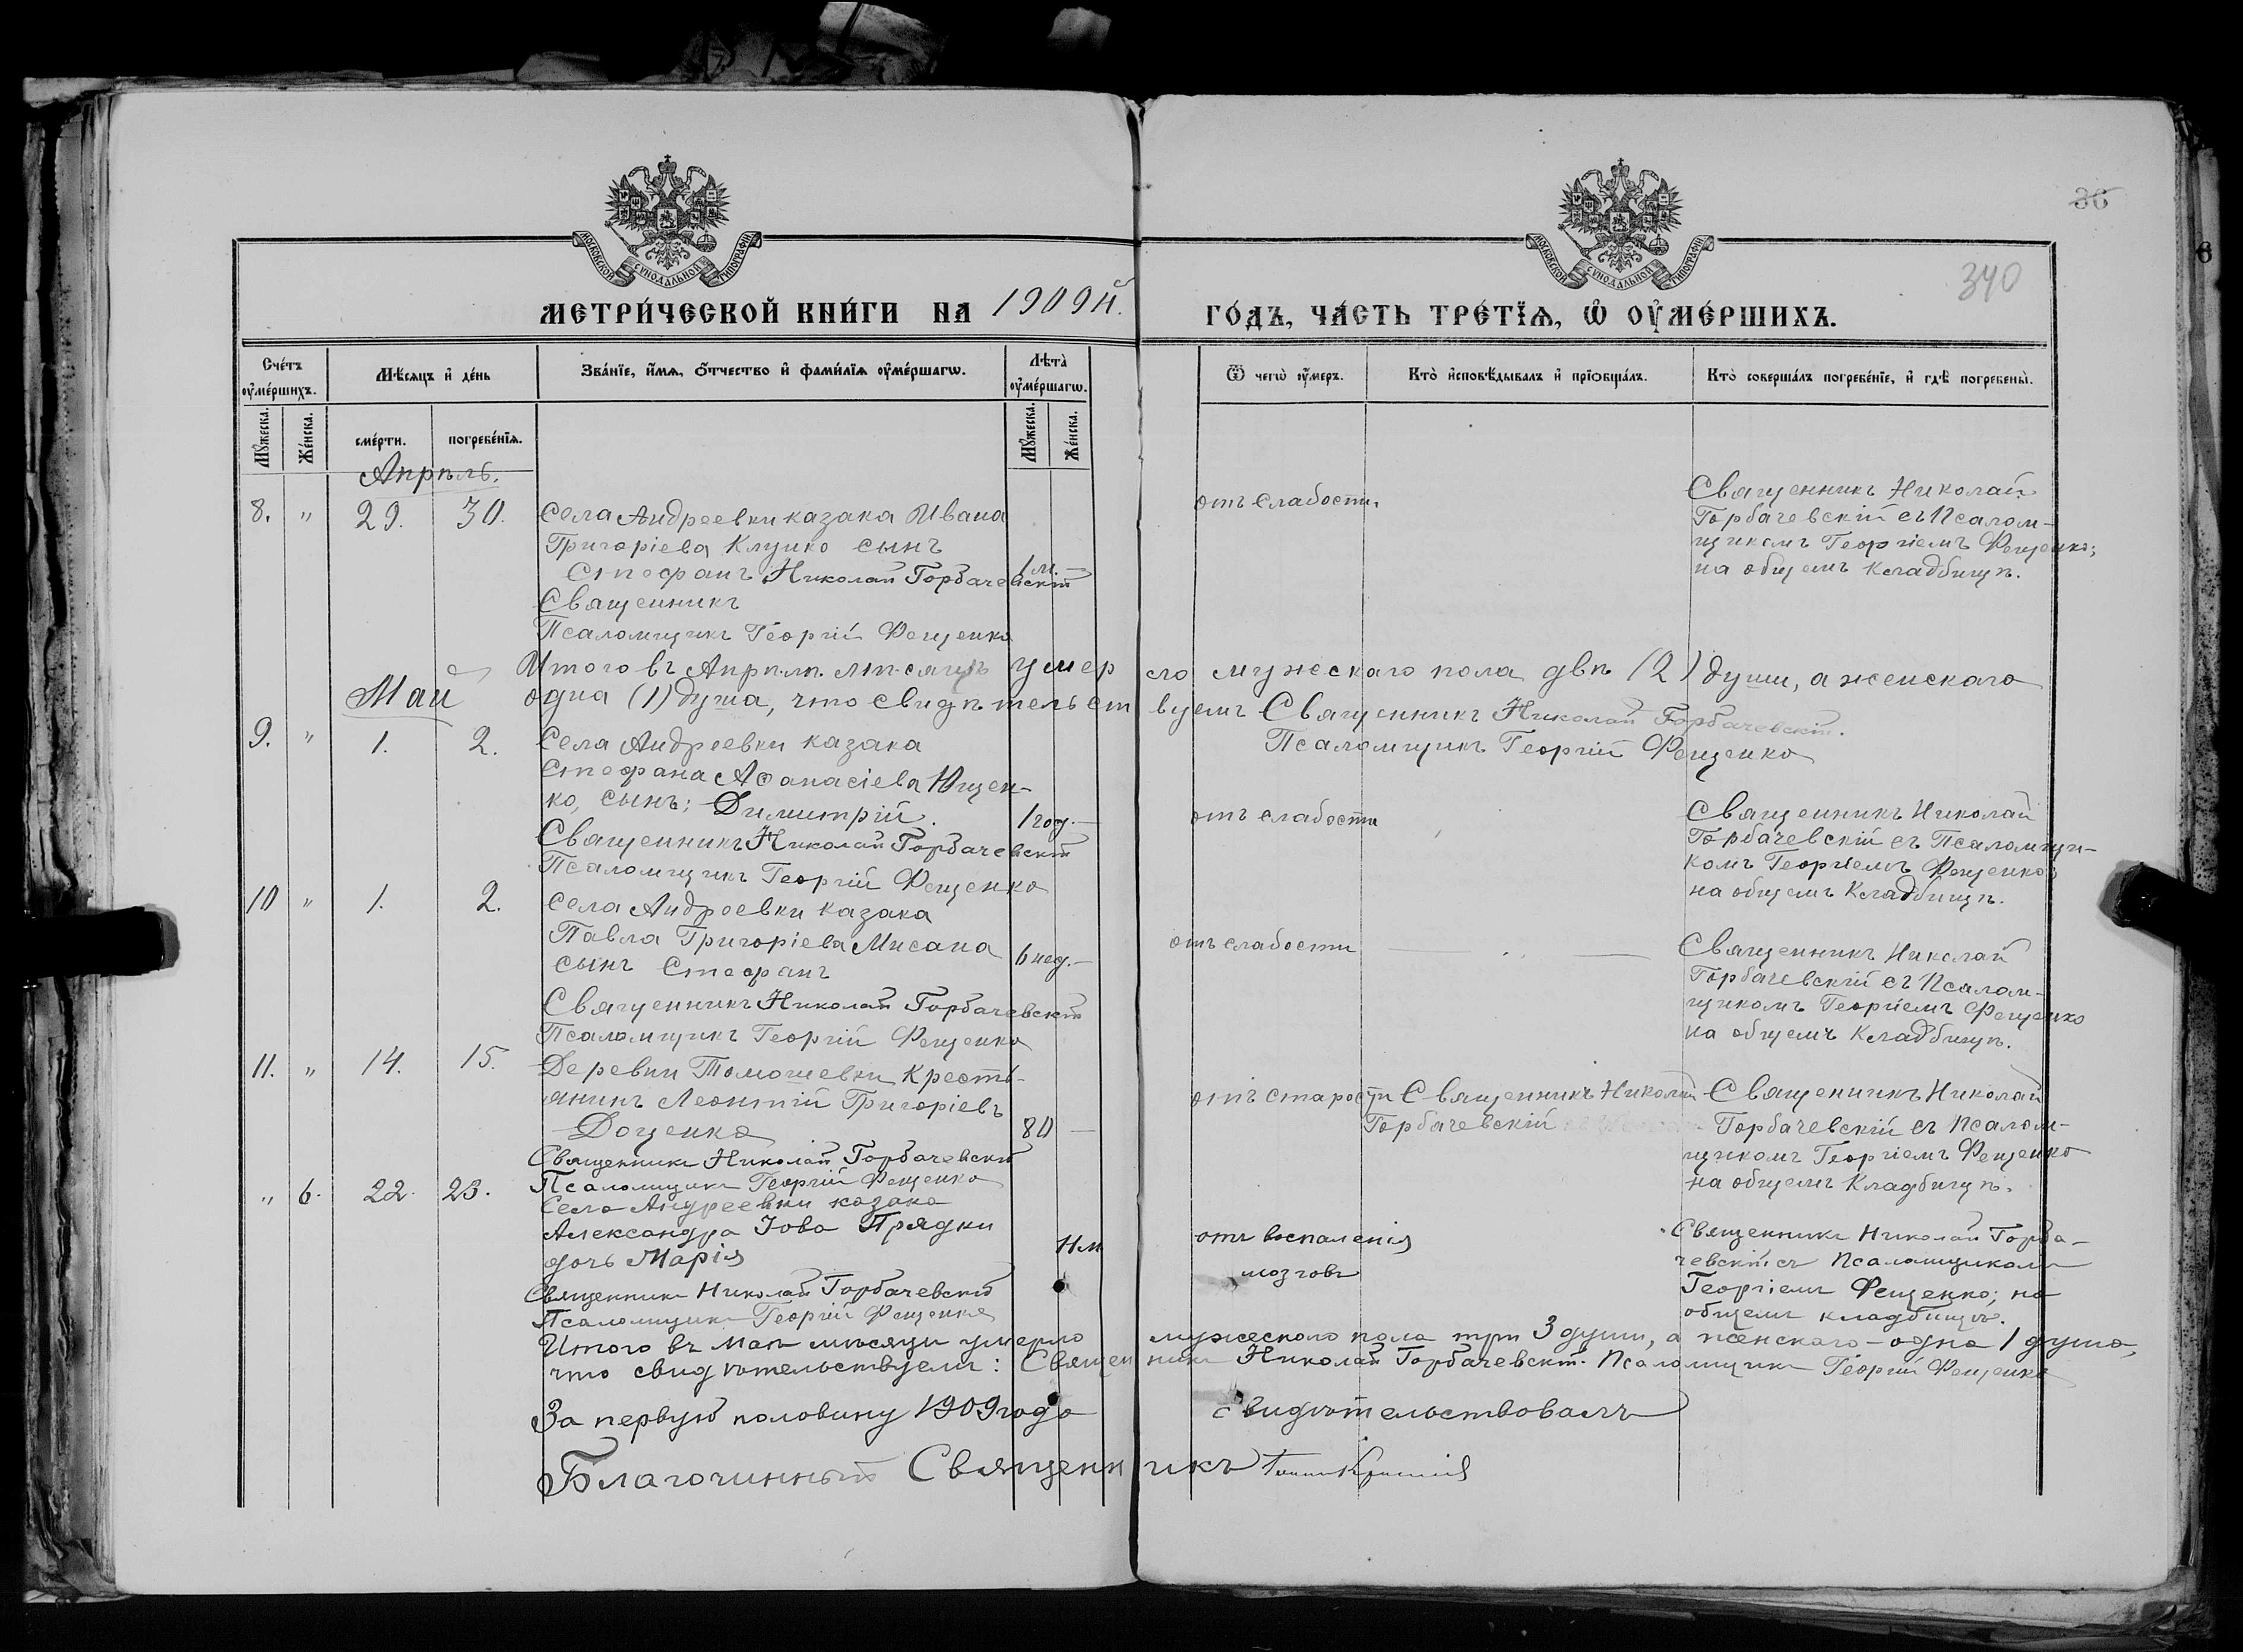 36
340
МОСКОВСКОЙ СѴНОДАЛЬНОЙ ТИПОГРАФІИ
МОСКОВСКОЙ СѴНОДАЛЬНОЙ ТИПОГРАФІИ
МЕТРИ́ЧЕСКОЙ КНИ́ГИ НА 1909й.
ГО́ДЪ, ЧА́СТЬ ТРЕ́ТЇѦ, Ѡ҆ ОУ҆МЕ́РШИХЪ.
Сче́тъ оу҆ме́ршихъ.
Мꙋ́жеска.
Же́нска.
Мѣ́сѧцъ и҆ де́нь
сме́рти.
погребе́нїѧ.
Зва́нїе, и҆́мѧ, ѻ҆́тчество и҆ фами́лїѧ оу҆ме́ршагѡ.
Лѣта̀ оу҆ме́ршагѡ.
Мꙋ́жеска.
Же́нска.
Ѿ чегѡ̀ оу҆́меръ.
Кто̀ и҆сповѣ́дывалъ и҆ прїѡбща́лъ.
Кто̀ соверша́лъ погребе́нїе, и҆ гдѣ̀ погребены̀.
Апрѣль.
8. " 29. 30. Села Андреевки казака Ивана
Григоріева Клушко сынъ
Стефанъ 1 м. —
Николай Горбачевскій
Священникъ
Псаломщикъ Георгій Фещенко
отъ слабости.
Священникъ Николай
Горбачевскій съ Псалом-
щикомъ Георгіемъ Фещенко;
на общемъ кладбищѣ.
Итого въ Апрѣлѣ мѣсяцѣ умерло мужескаго пола двѣ (2) души, а женскаго
Май
одна (1) душа, что свидѣтельствуемъ Священникъ Николай Горбачевскій.
Псаломщикъ Георгій Фещенко
9. " 1. 2. Села Андреевки казака
Стефана Аѳанасіева Ющен-
ко, сынъ: Димитрій. 1 год. —
Священникъ Николай Горбачевскій
Псаломщикъ Георгій Фещенко
отъ слабости
Священникъ Николай
Горбачевскій съ Псаломщи-
комъ Георгіемъ Фещенко;
на общемъ кладбищѣ.
10 " 1. 2. Села Андреевки казака
Павла Григоріева Мисана 6 нед. —
сынъ Стефанъ
Священникъ Николай Горбачевскій
Псаломщикъ Георгій Фещенко
отъ слабости — " —
Священникъ Николай
Горбачевскій съ Псалом-
щикомъ Георгіемъ Фещенко
на общемъ кладбищѣ.
11. " 14. 15. Деревни Томошевки Кресть-
янинъ Леонтій Григоріевъ
Доценко 80 —
Священникъ Николай Горбачевскій
Псаломщикъ Георгій Фещенко
отъ старости
Священникъ Николай
Горбачевскій
Священникъ Николай
Горбачевскій съ Псалом-
щикомъ Георгіемъ Фещенко
на общемъ кладбищѣ.
" 6. 22. 23. Села Андреевки казака
Александра Іова Прядки
дочь Марія 11 м
Священникъ Николай Горбачевскій
Псаломщикъ Георгій Фещенко
отъ воспаленія
мозговъ
Священникъ Николай Горба-
чевскій съ Псаломщикомъ
Георгіемъ Фещенко; на
общемъ кладбищѣ.
Итого въ маѣ мѣсяцѣ умерло мужескаго пола три 3 души, а женскаго – одна 1 душа,
что свидѣтельствуемъ: Священникъ Николай Горбачевскій. Псаломщикъ Георгій Фещенко
За первую половину 1909 года свидѣтельствовалъ
Благочинный Священникъ